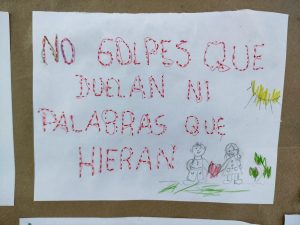 NO GOLPES QUE
DUELAN NI
PALABRAS QUE
HIERAN